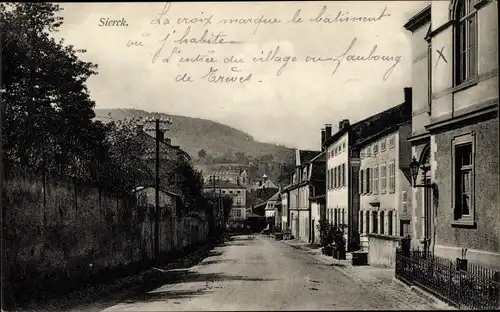 Sierck.
La croix marque le batiment
où j'habite
à l'entée du village ou faubourg
de Trèves